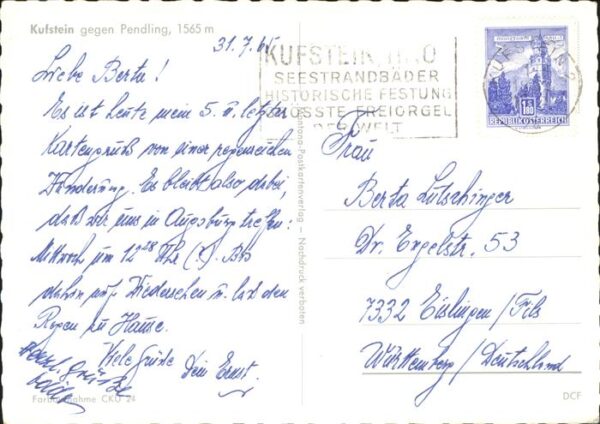 Kufstein gegen Pendling, 1565 m
31. 7. 65
KUFSTEIN, TIROL
SEESTRANDBÄDER
HISTORISCHE FESTUNG
GRÖSSTE FREIORGEL
DER WELT
1.80
REPUBLIK ÖSTERREICH
Liebe Berta!
Es ist heute mein 5. u. letzter
Kartengruß von einer regenreichen
Wanderung. Es bleibt also dabei,
daß wir uns in Augsburg treffen:
Mittwoch um 12 28 Uhr (?). Bis
dahin auf Wiedersehen u. laß den
Regen zu Hause.
Viele Grüße
Dein Ernst.
Grüße
Farbaufnahme CKO 24
Postkartenverlag – Nachdruck verboten
Frau
Berta Lutschinger
Dr. Engelstr. 53
7332 Eislingen / Fils
Württemberg / Deutschland
DCF